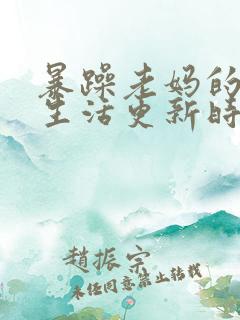 暴躁老妈的
生活更新时
趙振宗
未经同意禁止转载